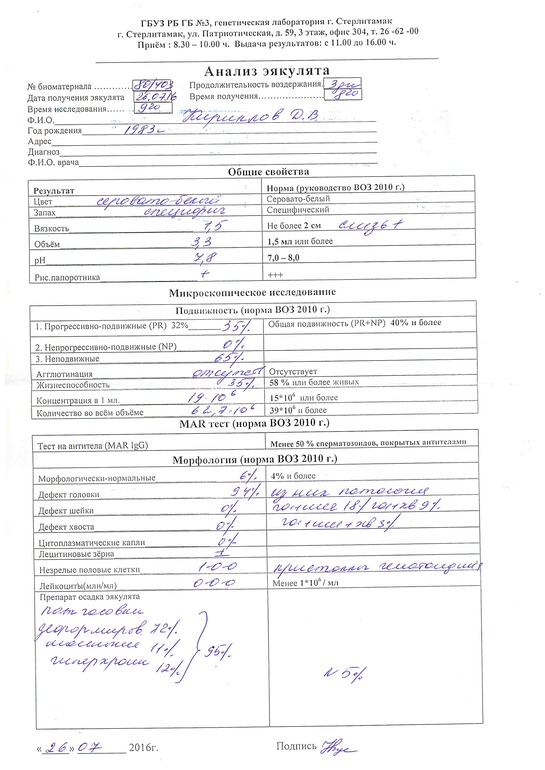 ГБУЗ РБ ГБ №3, генетическая лаборатория г. Стерлитамак
г. Стерлитамак, ул. Патриотическая, д. 59, 3 этаж, офис 304, т. 26 -62 -00
Приём : 8.30 – 10.00 ч. Выдача результатов: с 11.00 до 16.00 ч.
Анализ эякулята
№ биоматериала 80/403 Продолжительность воздержания 3 дн
Дата получения эякулята 26.07.16 Время получения 8 20
Время исследования 9 20
Ф.И.О. Кириллов Д.В
Год рождения 1983г
Адрес
Диагноз
Ф.И.О. врача
Общие свойства
Результат Норма (руководство ВОЗ 2010 г.)
Цвет серовато-белый Серовато-белый
Запах специфич Специфический
Вязкость 1,5 Не более 2 см слизь +
Объём 3,3 1,5 мл или более
pH 7,8 7,0 – 8,0
Рис.папоротника + +++
Микроскопическое исследование
Подвижность (норма ВОЗ 2010 г.)
1. Прогрессивно-подвижные (PR) 32% 35% Общая подвижность (PR+NP) 40% и более
2. Непрогрессивно-подвижные (NP) 0%
3. Неподвижные 65%
Агглютинация отсутств Отсутствует
Жизнеспособность 35% 58 % или более живых
Концентрация в 1 мл. 19·10⁶ 15*10⁶ или более
Количество во всём объёме 62,7·10⁶ 39*10⁶ и более
MAR тест (норма ВОЗ 2010 г.)
Тест на антитела (MAR IgG) Менее 50 % сперматозоидов, покрытых антителами
Морфология (норма ВОЗ 2010 г.)
Морфологически-нормальные 6% 4% и более
Дефект головки 94% из них патология
Дефект шейки 0% гол+шея 18% гол+хв 9%
Дефект хвоста 0% гол+шея+хв 3%
Цитоплазматические капли 0%
Лецитиновые зёрна 1
Незрелые половые клетки 1-0-0 кристаллы
Лейкоциты(млн/мл) 0-0-0 Менее 1*10⁶ / мл
Препарат осадка эякулята
пат головки
деформиров 72%
11% 95%
гиперхром 12%
N 5%
«26» 07 2016г. Подпись